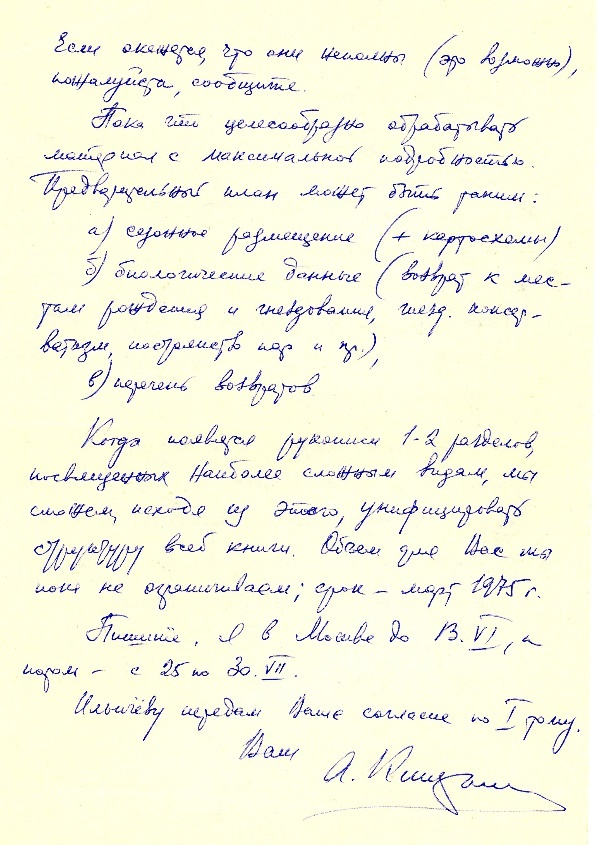 Если окажется, что они неполны (это возможно),
пожалуйста, сообщите.
Пока что целесообразно обрабатывать
материал с максимальной подробностью.
Предварительный план может быть таким:
а) сезонное размещение (+ картосхемы)
б) биологические данные (возврат к мес-
там рождения и гнездования, гнезд. консер-
ватизм, постоянство пар и пр.),
в) перечень возвратов
Когда появятся рукописи 1-2 разделов,
посвященных наиболее сложным видам, мы
сможем, исходя из этого, унифицировать
структуру всей книги. Объем для Вас мы
пока не ограничиваем; срок – март 1975 г.
Пишите. Я в Москве до 13.VI, а
потом – с 25 по 30.VII.
Ильичёву передам Ваше согласие по I тому.
Ваш
А.